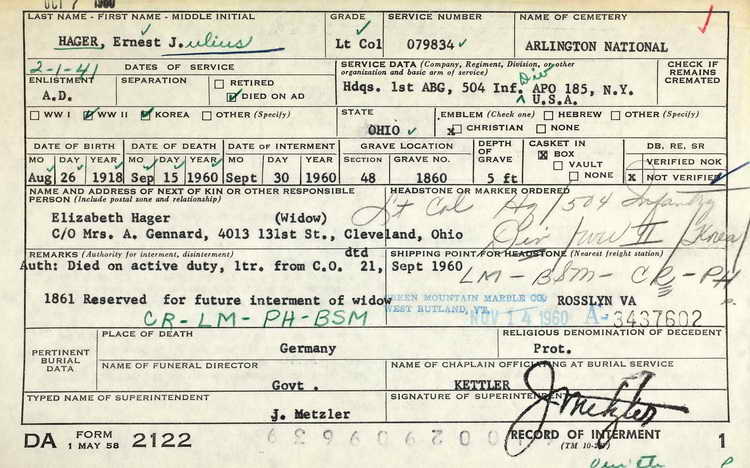 OCT 7 1960
LAST NAME - FIRST NAME - MIDDLE INITIAL GRADE SERVICE NUMBER NAME OF CEMETERY
HAGER, Ernest Julius Lt Col 079834 ARLINGTON NATIONAL
2-1-41 DATES OF SERVICE SERVICE DATA (Company, Regiment, Division, or other organization and basic arm of service) CHECK IF REMAINS CREMATED
ENLISTMENT SEPARATION RETIRED DIED ON AD
A.D. Hdqs. 1st ABG, 504 Inf. Div APO 185, N.Y.
U.S.A.
WW I WW II KOREA OTHER (Specify) STATE EMBLEM (Check one) HEBREW OTHER (Specify)
OHIO x CHRISTIAN NONE
DATE OF BIRTH DATE OF DEATH DATE OF INTERMENT GRAVE LOCATION DEPTH OF GRAVE CASKET IN DB, RE, SR
MO DAY YEAR MO DAY YEAR SECTION GRAVE NO. x BOX VAULT NONE VERIFIED NOK
Aug 26 1918 Sep 15 1960 Sept 30 1960 48 1860 5 ft x NOT VERIFIED
NAME AND ADDRESS OF NEXT OF KIN OR OTHER RESPONSIBLE PERSON (Include postal zone and relationship) HEADSTONE OR MARKER ORDERED
Elizabeth Hager (Widow) Lt Col Hq/504 Infantry
C/O Mrs. A. Gennard, 4013 131st St., Cleveland, Ohio Div WW II/Korea
REMARKS (Authority for interment, disinterment) SHIPPING POINT FOR HEADSTONE (Nearest freight station)
dtd
Auth: Died on active duty, ltr. from C.O. 21, Sept 1960
LM-BSM-CR-PH
1861 Reserved for future interment of widow GREEN MOUNTAIN MARBLE CO. ROSSLYN VA
WEST RUTLAND, VT. NOV 14 1960 A-3437602
CR-LM-PH-BSM
PERTINENT BURIAL DATA PLACE OF DEATH RELIGIOUS DENOMINATION OF DECEDENT
Germany Prot.
NAME OF FUNERAL DIRECTOR NAME OF CHAPLAIN OFFICIATING AT BURIAL SERVICE
Govt. KETTLER
TYPED NAME OF SUPERINTENDENT SIGNATURE OF SUPERINTENDENT
J. Metzler J. Metzler
DA FORM 1 MAY 58 2122 RECORD OF INTERMENT 1